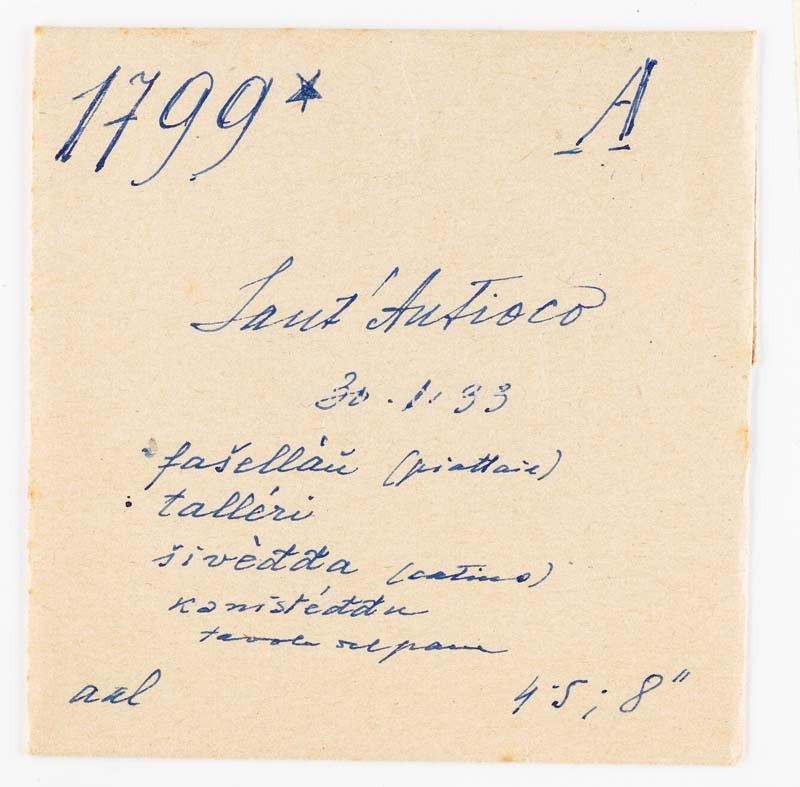 1799* A
Sant'Antioco
30.1.33
fašelláu̯ (piattaie)
talléri
šivèđđa (catino)
konistéđđu
tavola del pane
4·5; 8"